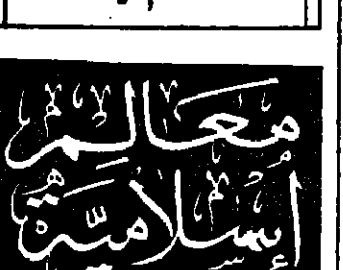 معالم
إسلامية